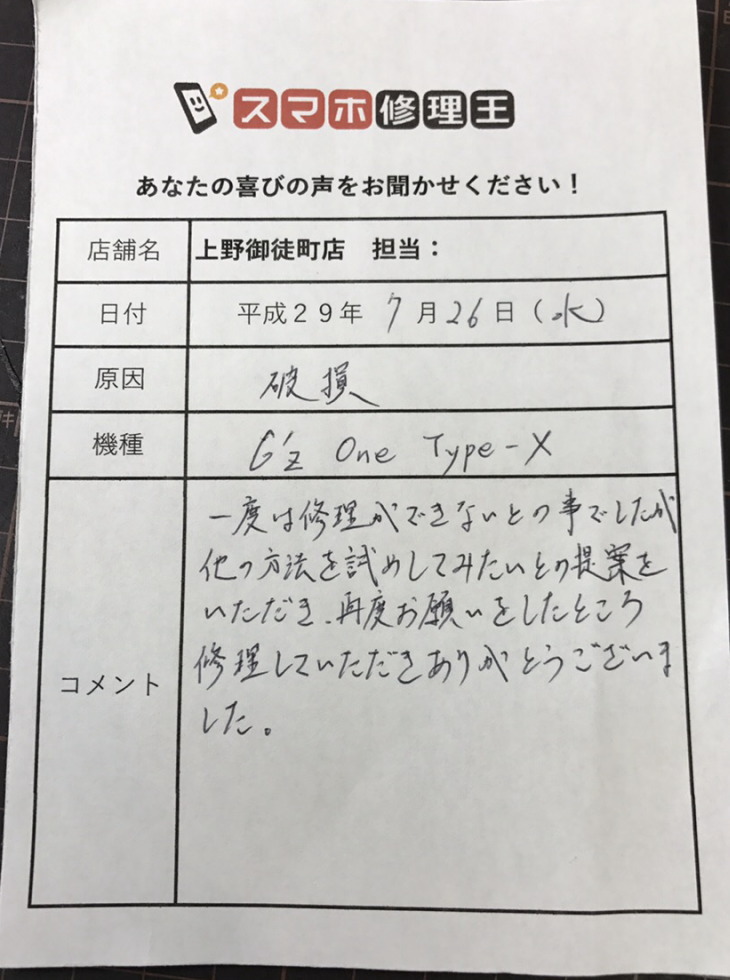 スマホ修理王
あなたの喜びの声をお聞かせください！
店舗名 上野御徒町店 担当：
日付 平成２９年 7月26日（水）
原因 破損
機種 G'z One Type-X
コメント
一度は修理ができないとの事でしたが
他の方法を試めしてみたいとの提案を
いただき、再度お願いをしたところ
修理していただきありがとうございま
した。